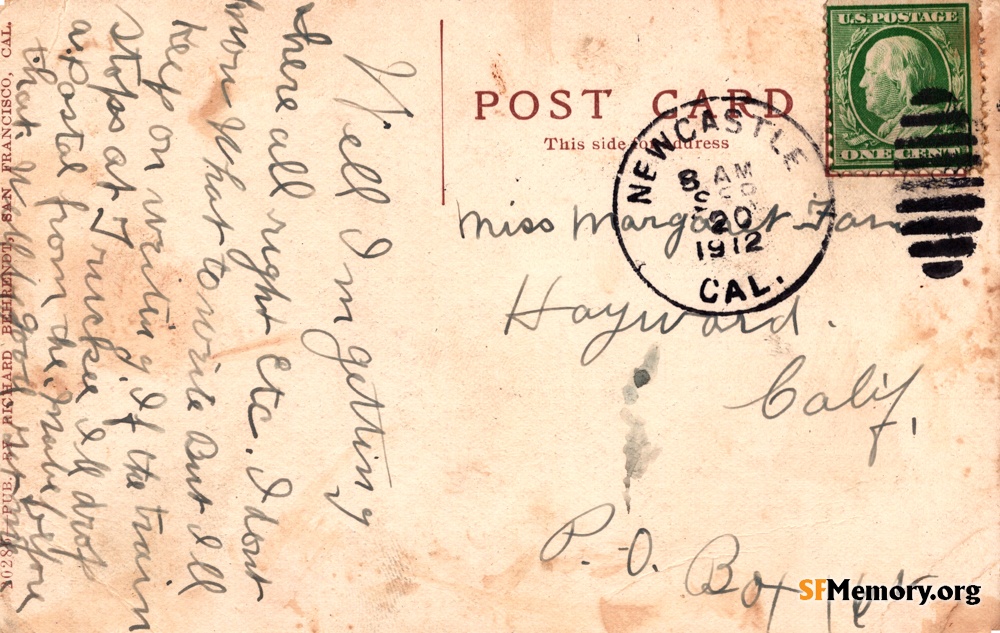 Well I'm getting
there all right Etc. I dont
know What to write But I'll
keep on writing. If the train
stops at Truckee I'll drop
a postal from the. Maybe before
that. Well good
PUB. BY RICHARD BEHRENDT, SAN FRANCISCO, CAL.
POST CARD
This side for address
U.S. POSTAGE
ONE CENT
NEWCASTLE
8 AM
SEP
20
1912
CAL.
Miss Margaret
Hayward.
Calif,
P.O. Box
SFMemory.org